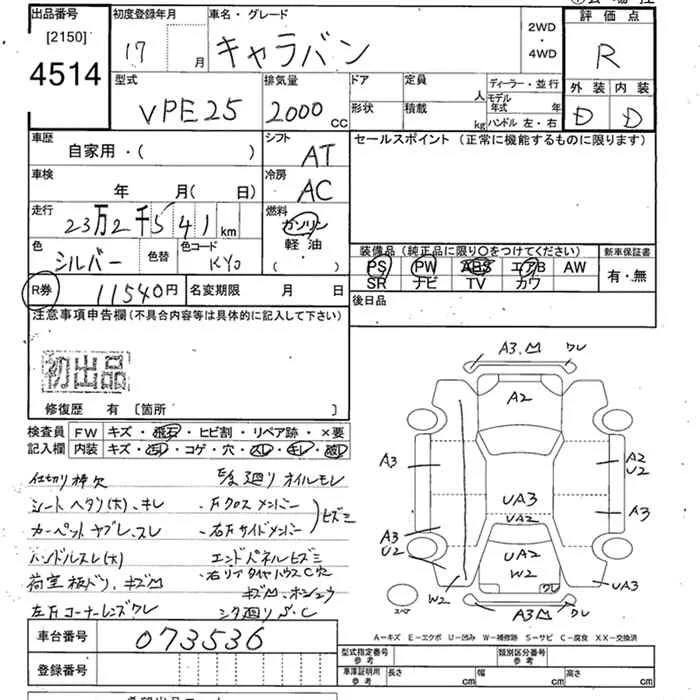 出品番号
[2150]
4514
初度登録年月
17 月
車名・グレード
キャラバン
2WD
・
4WD
評価点
R
外装 内装
D D
型式
VPE25
排気量
2000 CC
ドア
形状
定員
人
積載
kg
ディーラー・並行
モデル
年式 年
ハンドル 左・右
車歴
自家用・( )
シフト
AT
セールスポイント (正常に機能するものに限ります)
車検
年 月( 日)
冷房
AC
走行
23万2千541km
燃料
ガソリン
軽油
( )
色
シルバー
色替
色コード
KY0
装備品 (純正品に限り○をつけてください)
新車保証書
PS PW ABS エアB AW
SR ナビ TV カワ
有・無
R券
11540円
名変期限 月 日
後日品
注意事項申告欄(不具合内容等は具体的に記入して下さい)
初出品
修復歴 有 〔箇所 〕
検査員 FW キズ・飛石・ヒビ割・リペア跡・×要
記入欄 内装 キズ・汚レ・コゲ・穴・スレ・キレ・破レ
仕切り棒欠
シートヘタリ(大)、キレ
カーペットヤブレ、スレ
ハンドルスレ(大)
荷室板ドリ、キズM
左方コーナーレンズワレ
・左クロスメンバー
・右左サイドメンバー
ヒズミ
エンドパネルヒズミ
・右リアタイヤハウスC穴
シタ廻りS、C
A3.M ワレ
A2
A3
A2
U2
UA3
UA2
A3
A3
U2
UA2
W2
ワレ
W2
UA3
スペア
A3M ワレ
A−キズ E−エクボ U−凹み W−補修跡 S−サビ C−腐食 XX−交換済
車台番号
073536
型式指定番号
参考
類別区分番号
参考
登録番号
車庫証明用
参考
長さ cm
幅 cm
高さ cm